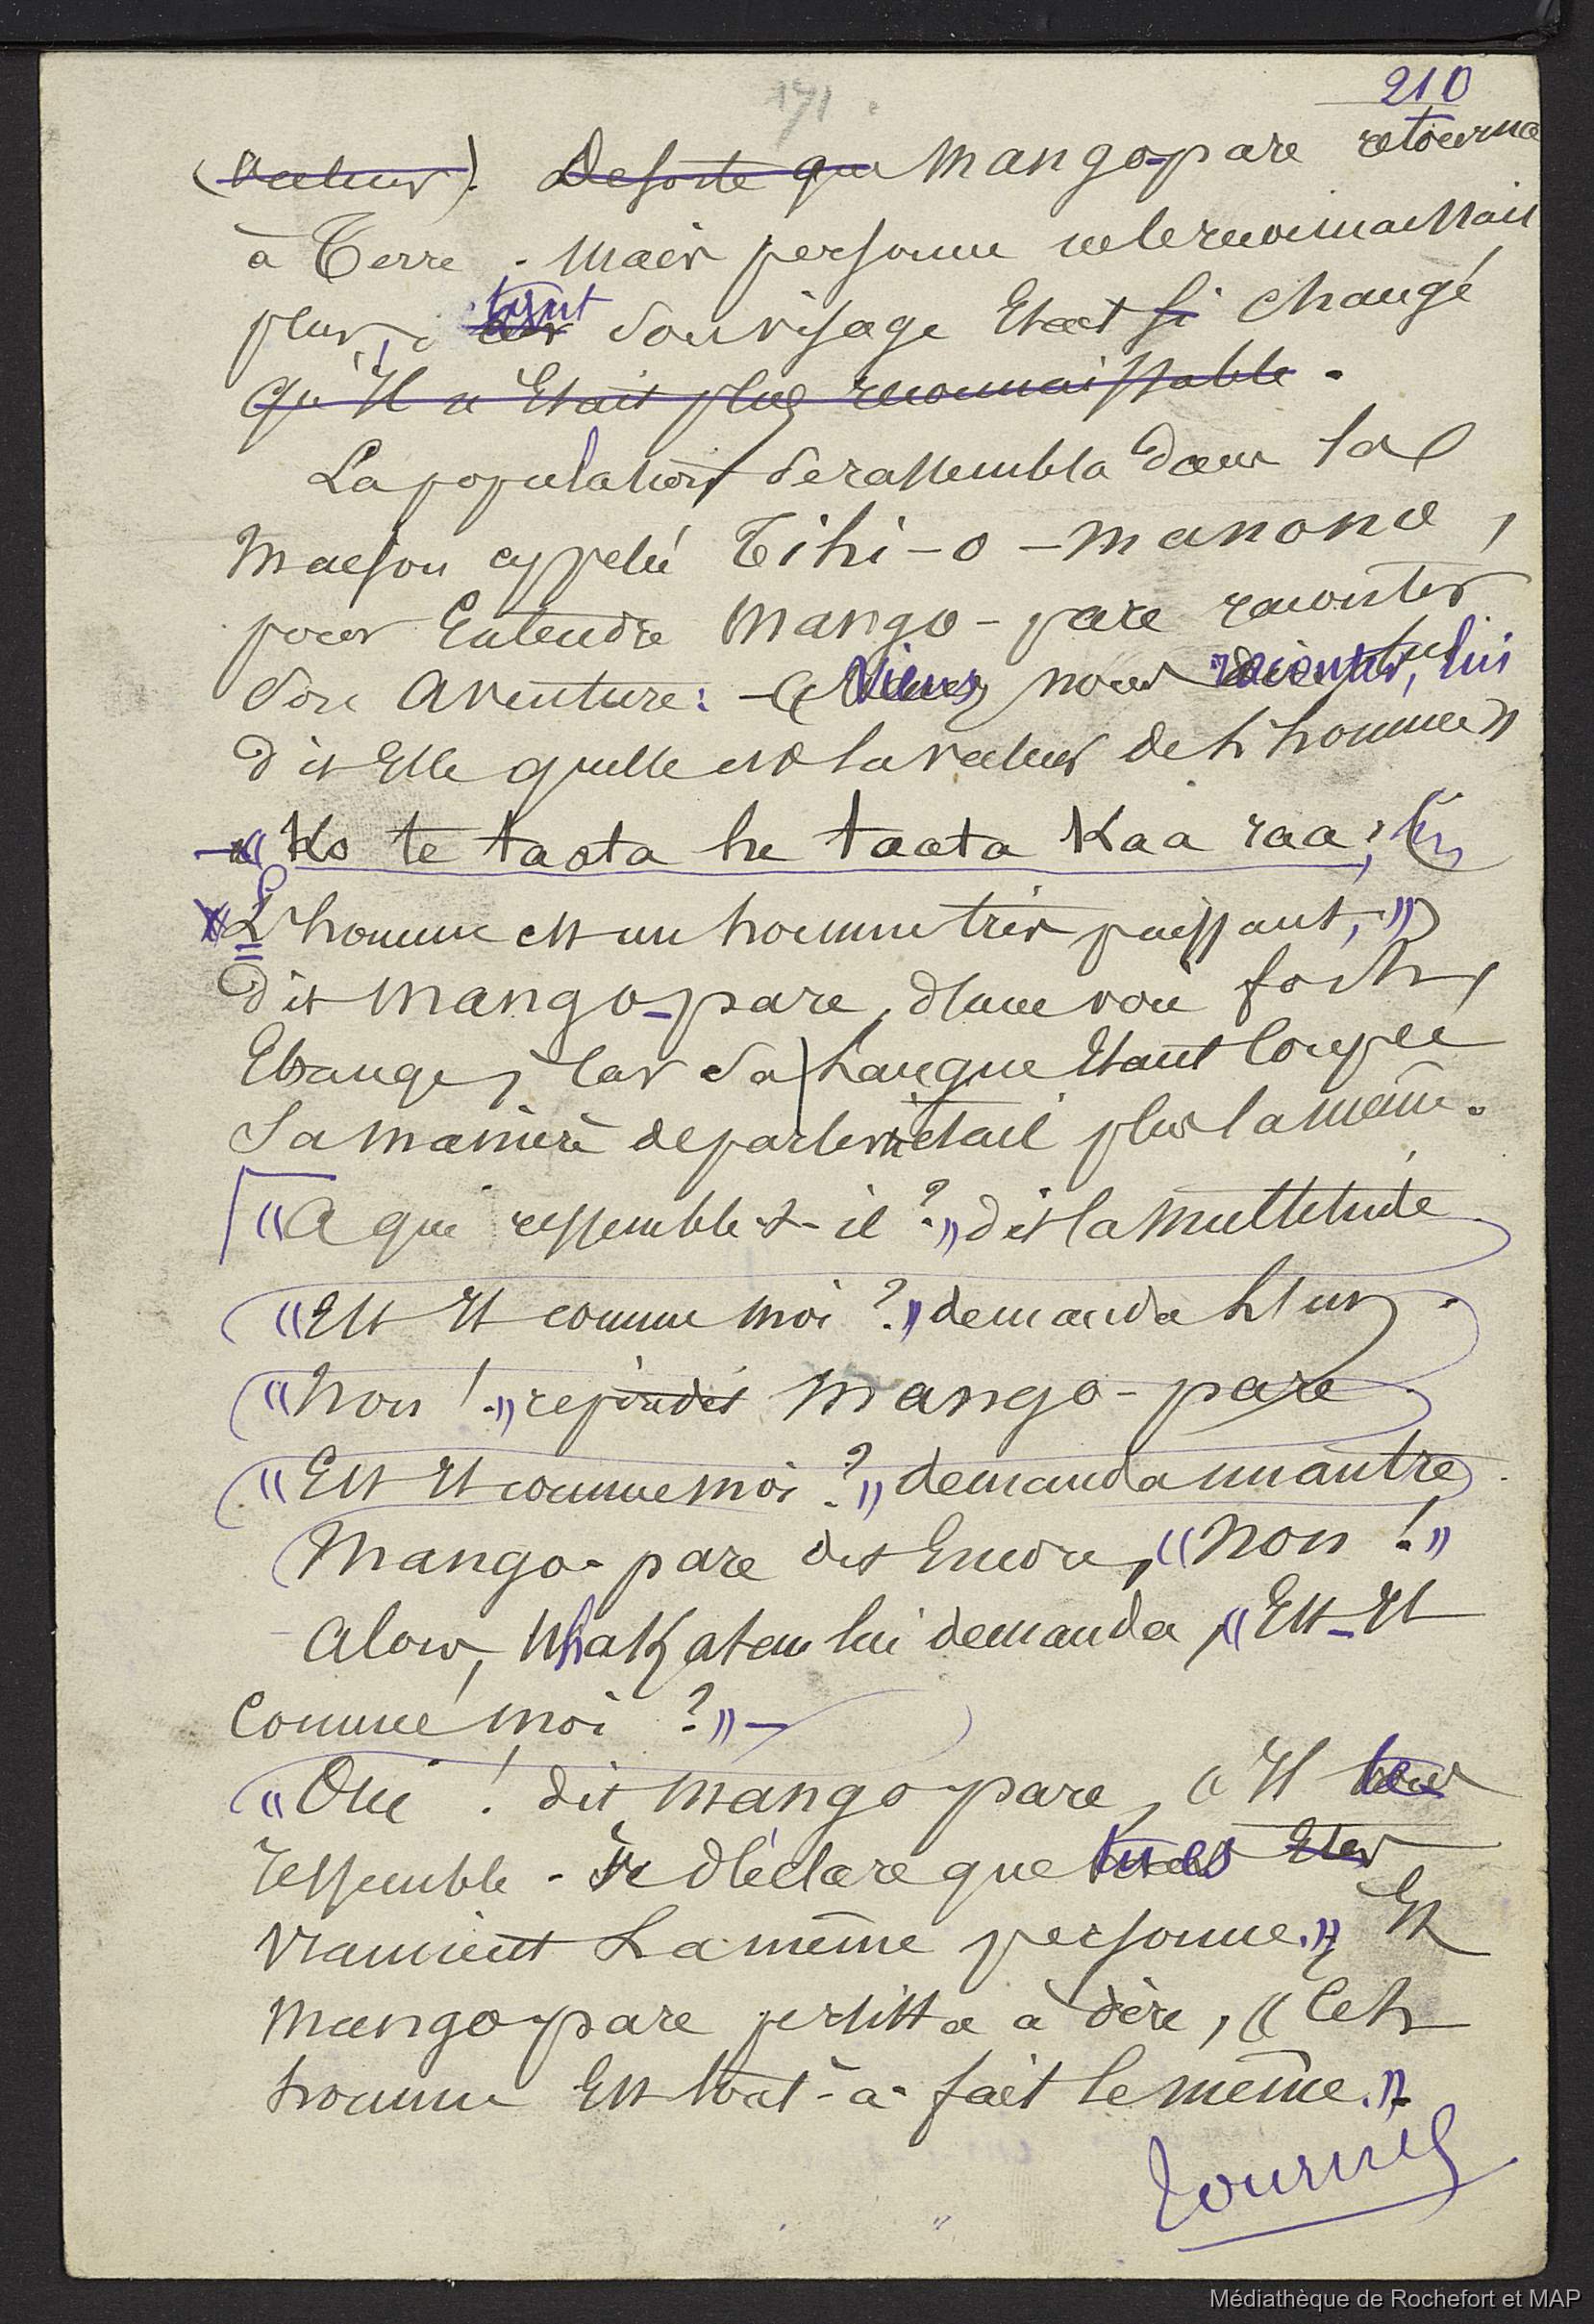 171.
210
(Valeur). De sorte que Mango-pare retourna
à Terre. Mais personne ne le reconnaissait
plus, tant son visage Etait si changé
qu'il n'Etait plus reconnaissable.
La population se rassembla dans la
Maison appelé Tihi-o-manono,
pour Entendre Mango-pare raconter
son aventure: - « Viens, nous raconter, lui
dit Elle quelle est la valeur de l'homme »
- « Ko te taata he taata Kaa raa; (
L'homme est un homme très puissant, ») 
dit Mango-pare, d'une voix forte,
Etrange, Car sa langue Etant Coupée
sa manière de parler n'etait plus la même.
« A qui ressemble-t-il? » dit la multitude
« Est Il comme moi? » demanda l'un.
« Non! » repondit Mango-pare
« Est Il comme moi? » demanda un autre.
Mango-pare dit Encore, « Non! »
Alors, Whakatau lui demanda, « Est-Il
Comme moi? » -
« Oui! dit Mango pare, « Il te
ressemble. Je déclare que tu es Etes
vraiment La même personne. » Et
Mango pare persista à dire, « Cet
homme Est tout-à-fait le même. »
Tournez
Médiathèque de Rochefort et MAP